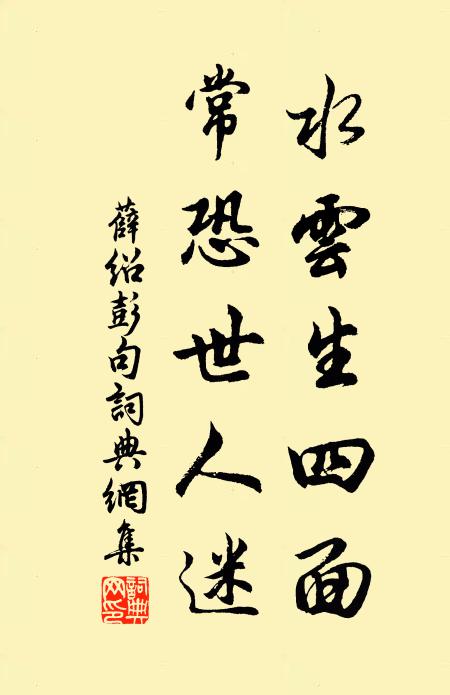 水雲生四面
常恐世人迷
薛紹彭句詞典網集
詞典網印